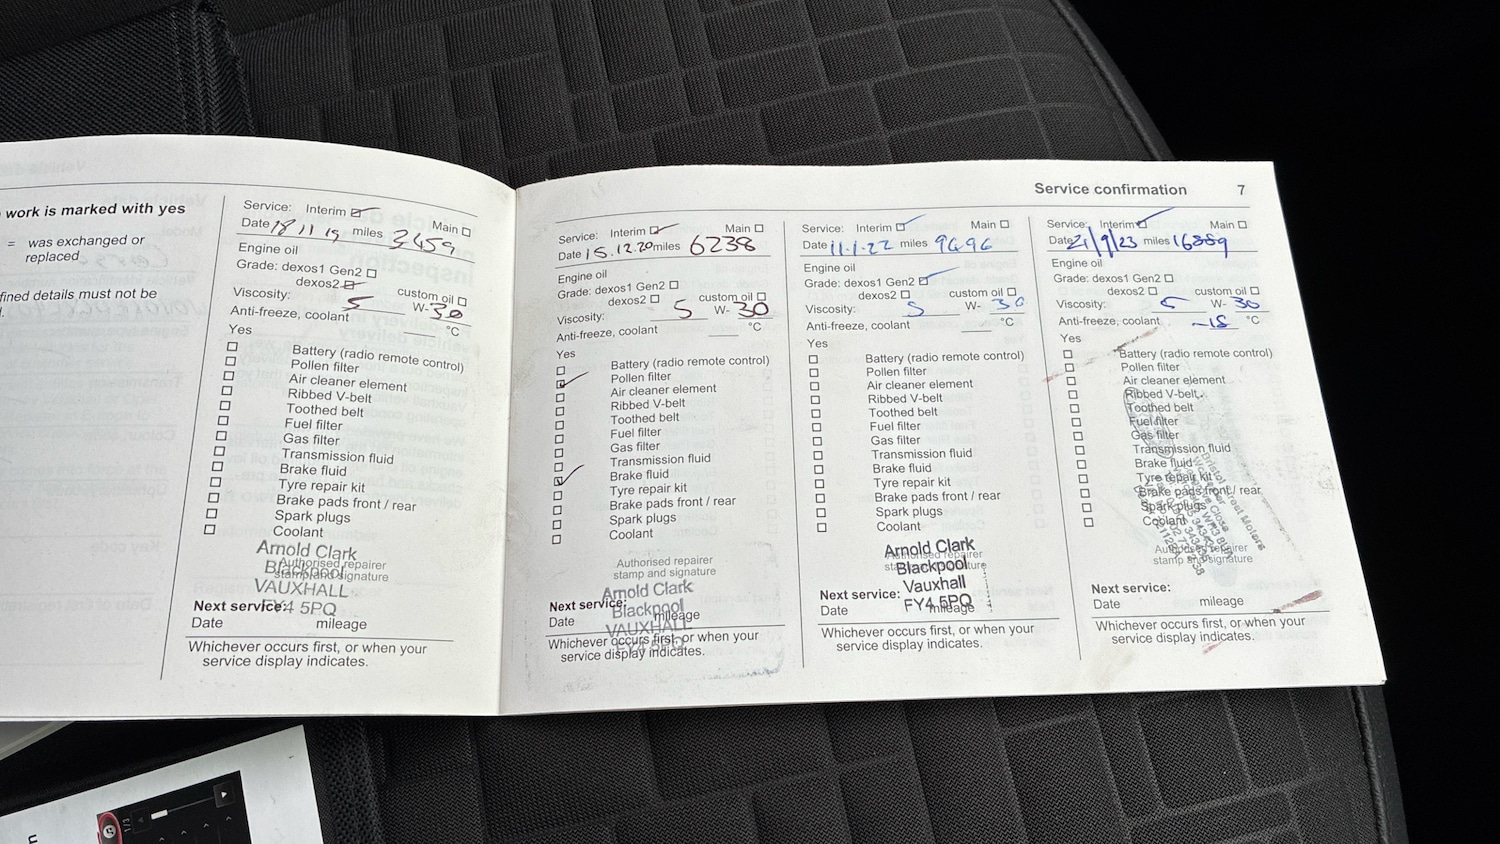 work is marked with yes
= was exchanged or
replaced
fined details must not be
Service: Interim Main
Date 18 11 19 miles 3459
Engine oil
Grade: dexos1 Gen2
dexos2 custom oil
Viscosity: 5 W- 30
Anti-freeze, coolant °C
Yes
Battery (radio remote control)
Pollen filter
Air cleaner element
Ribbed V-belt
Toothed belt
Fuel filter
Gas filter
Transmission fluid
Brake fluid
Tyre repair kit
Brake pads front / rear
Spark plugs
Coolant
Arnold Clark
Authorised repairer
Blackpool
stamp and signature
VAUXHALL
Next service: FY4 5PQ
Date mileage
Whichever occurs first, or when your
service display indicates.
Service confirmation 7
Service: Interim Main
Date 15.12.20 miles 6238
Engine oil
Grade: dexos1 Gen2
dexos2 custom oil
Viscosity: 5 W- 30
Anti-freeze, coolant °C
Yes
Battery (radio remote control)
Pollen filter
Air cleaner element
Ribbed V-belt
Toothed belt
Fuel filter
Gas filter
Transmission fluid
Brake fluid
Tyre repair kit
Brake pads front / rear
Spark plugs
Coolant
Authorised repairer
stamp and signature
Arnold Clark
Next service:
Blackpool
Date mileage
VAUXHALL
Whichever occurs first, or when your
FY4 5PQ
service display indicates.
Service: Interim Main
Date 11.1.22 miles 9696
Engine oil
Grade: dexos1 Gen2
dexos2 custom oil
Viscosity: 5 W- 30
Anti-freeze, coolant °C
Yes
Battery (radio remote control)
Pollen filter
Air cleaner element
Ribbed V-belt
Toothed belt
Fuel filter
Gas filter
Transmission fluid
Brake fluid
Tyre repair kit
Brake pads front / rear
Spark plugs
Coolant
Arnold Clark
Authorised repairer
Blackpool
stamp and signature
Vauxhall
Next service: FY4 5PQ
Date mileage
Whichever occurs first, or when your
service display indicates.
Service: Interim Main
Date 21/9/23 miles 16389
Engine oil
Grade: dexos1 Gen2
dexos2 custom oil
Viscosity: 5 W- 30
Anti-freeze, coolant -18 °C
Yes
Battery (radio remote control)
Pollen filter
Air cleaner element
Ribbed V-belt
Toothed belt
Fuel filter
Gas filter
Transmission fluid
Brake fluid
Tyre repair kit
Brake pads front / rear
Spark plugs
Coolant
Bristol Street Motors
Authorised repairer
stamp and signature
Next service:
Date mileage
Whichever occurs first, or when your
service display indicates.